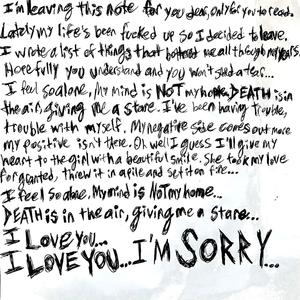 I'm leaving this note for you dear, only for you to read.
Lately my life's been fucked up so I decided to leave.
I wrote a list of things that bothered me all through my years.
Hopefully you understand and you won't shed a tear...
I feel so alone, My mind is NOT my home, DEATH is in
the air, giving me a stare. I've been having trouble,
trouble with myself. My negative side comes out more
my positive isn't there. Oh well I guess I'll give my
heart to the girl with a beautiful smile. She took my love
for granted, threw it in a pile and set it on fire...
I feel so alone. My mind is NOT my home...
DEATH is in the air, giving me a stare...
I LOVE YOU...
I LOVE YOU... I'M SORRY...